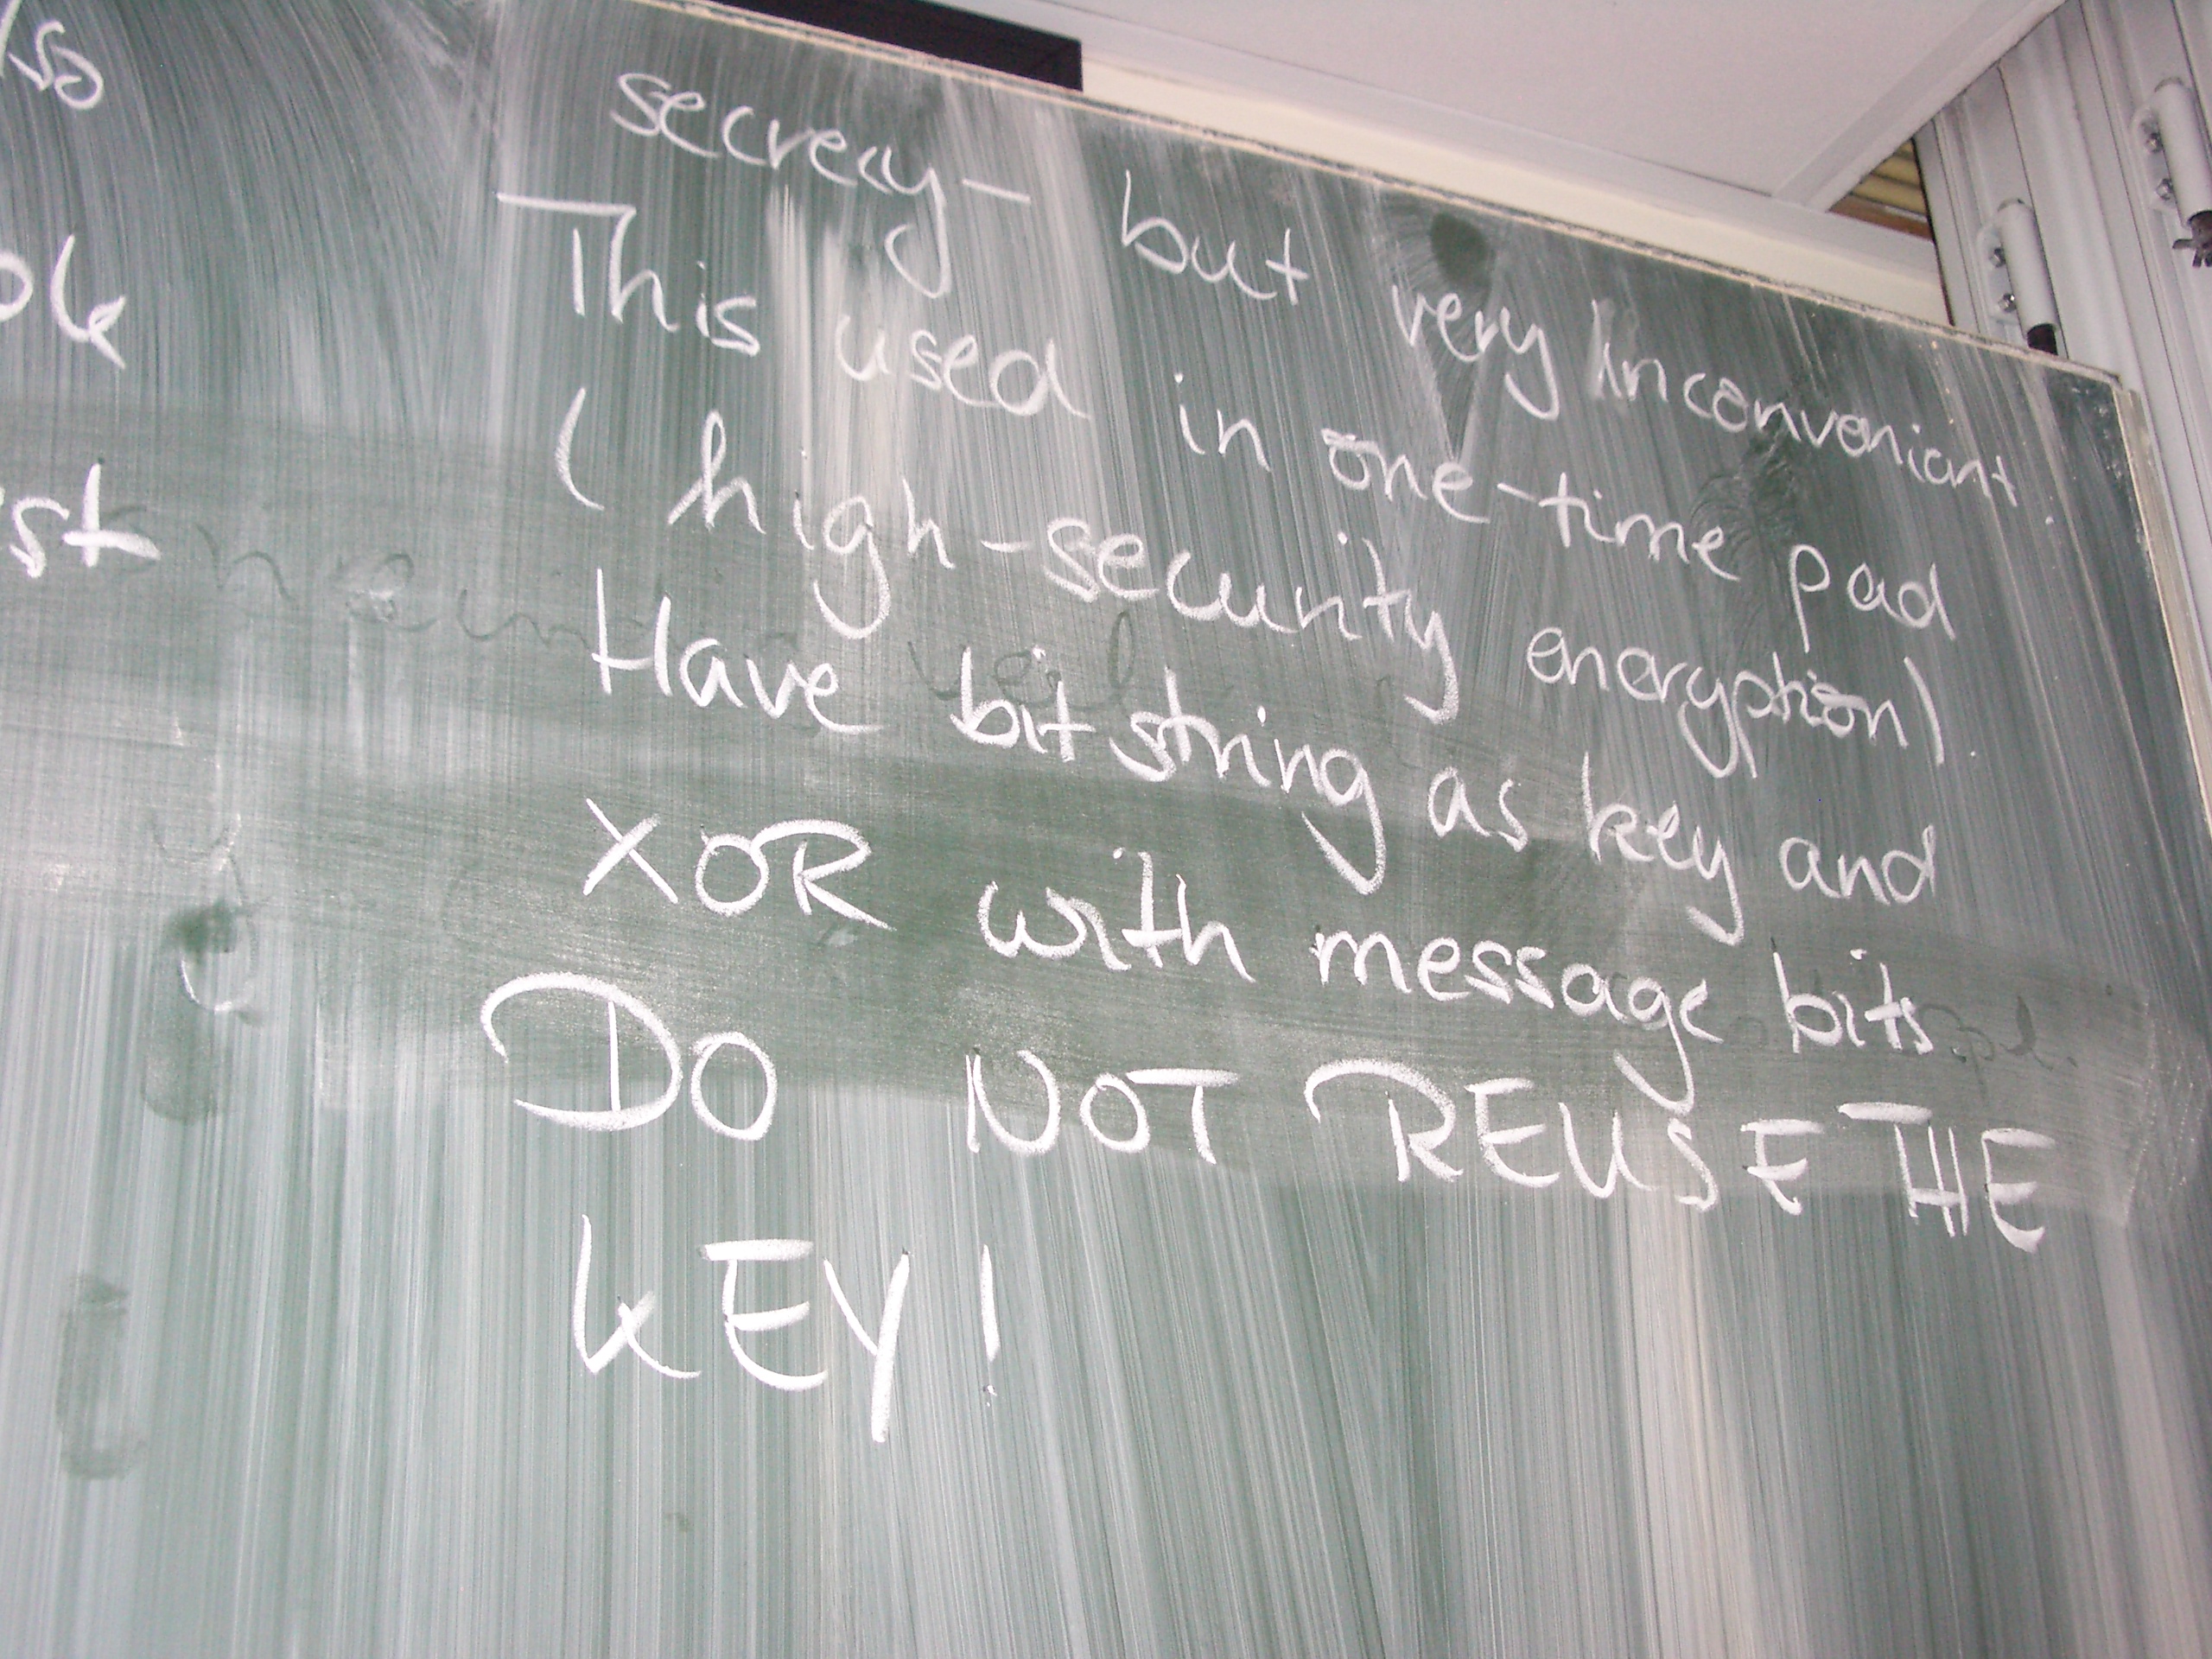 secrecy - but very inconvenient.
This used in one-time pad
(high-security encryption).
Have bit string as key and
XOR with message bits
DO NOT REUSE THE
KEY!